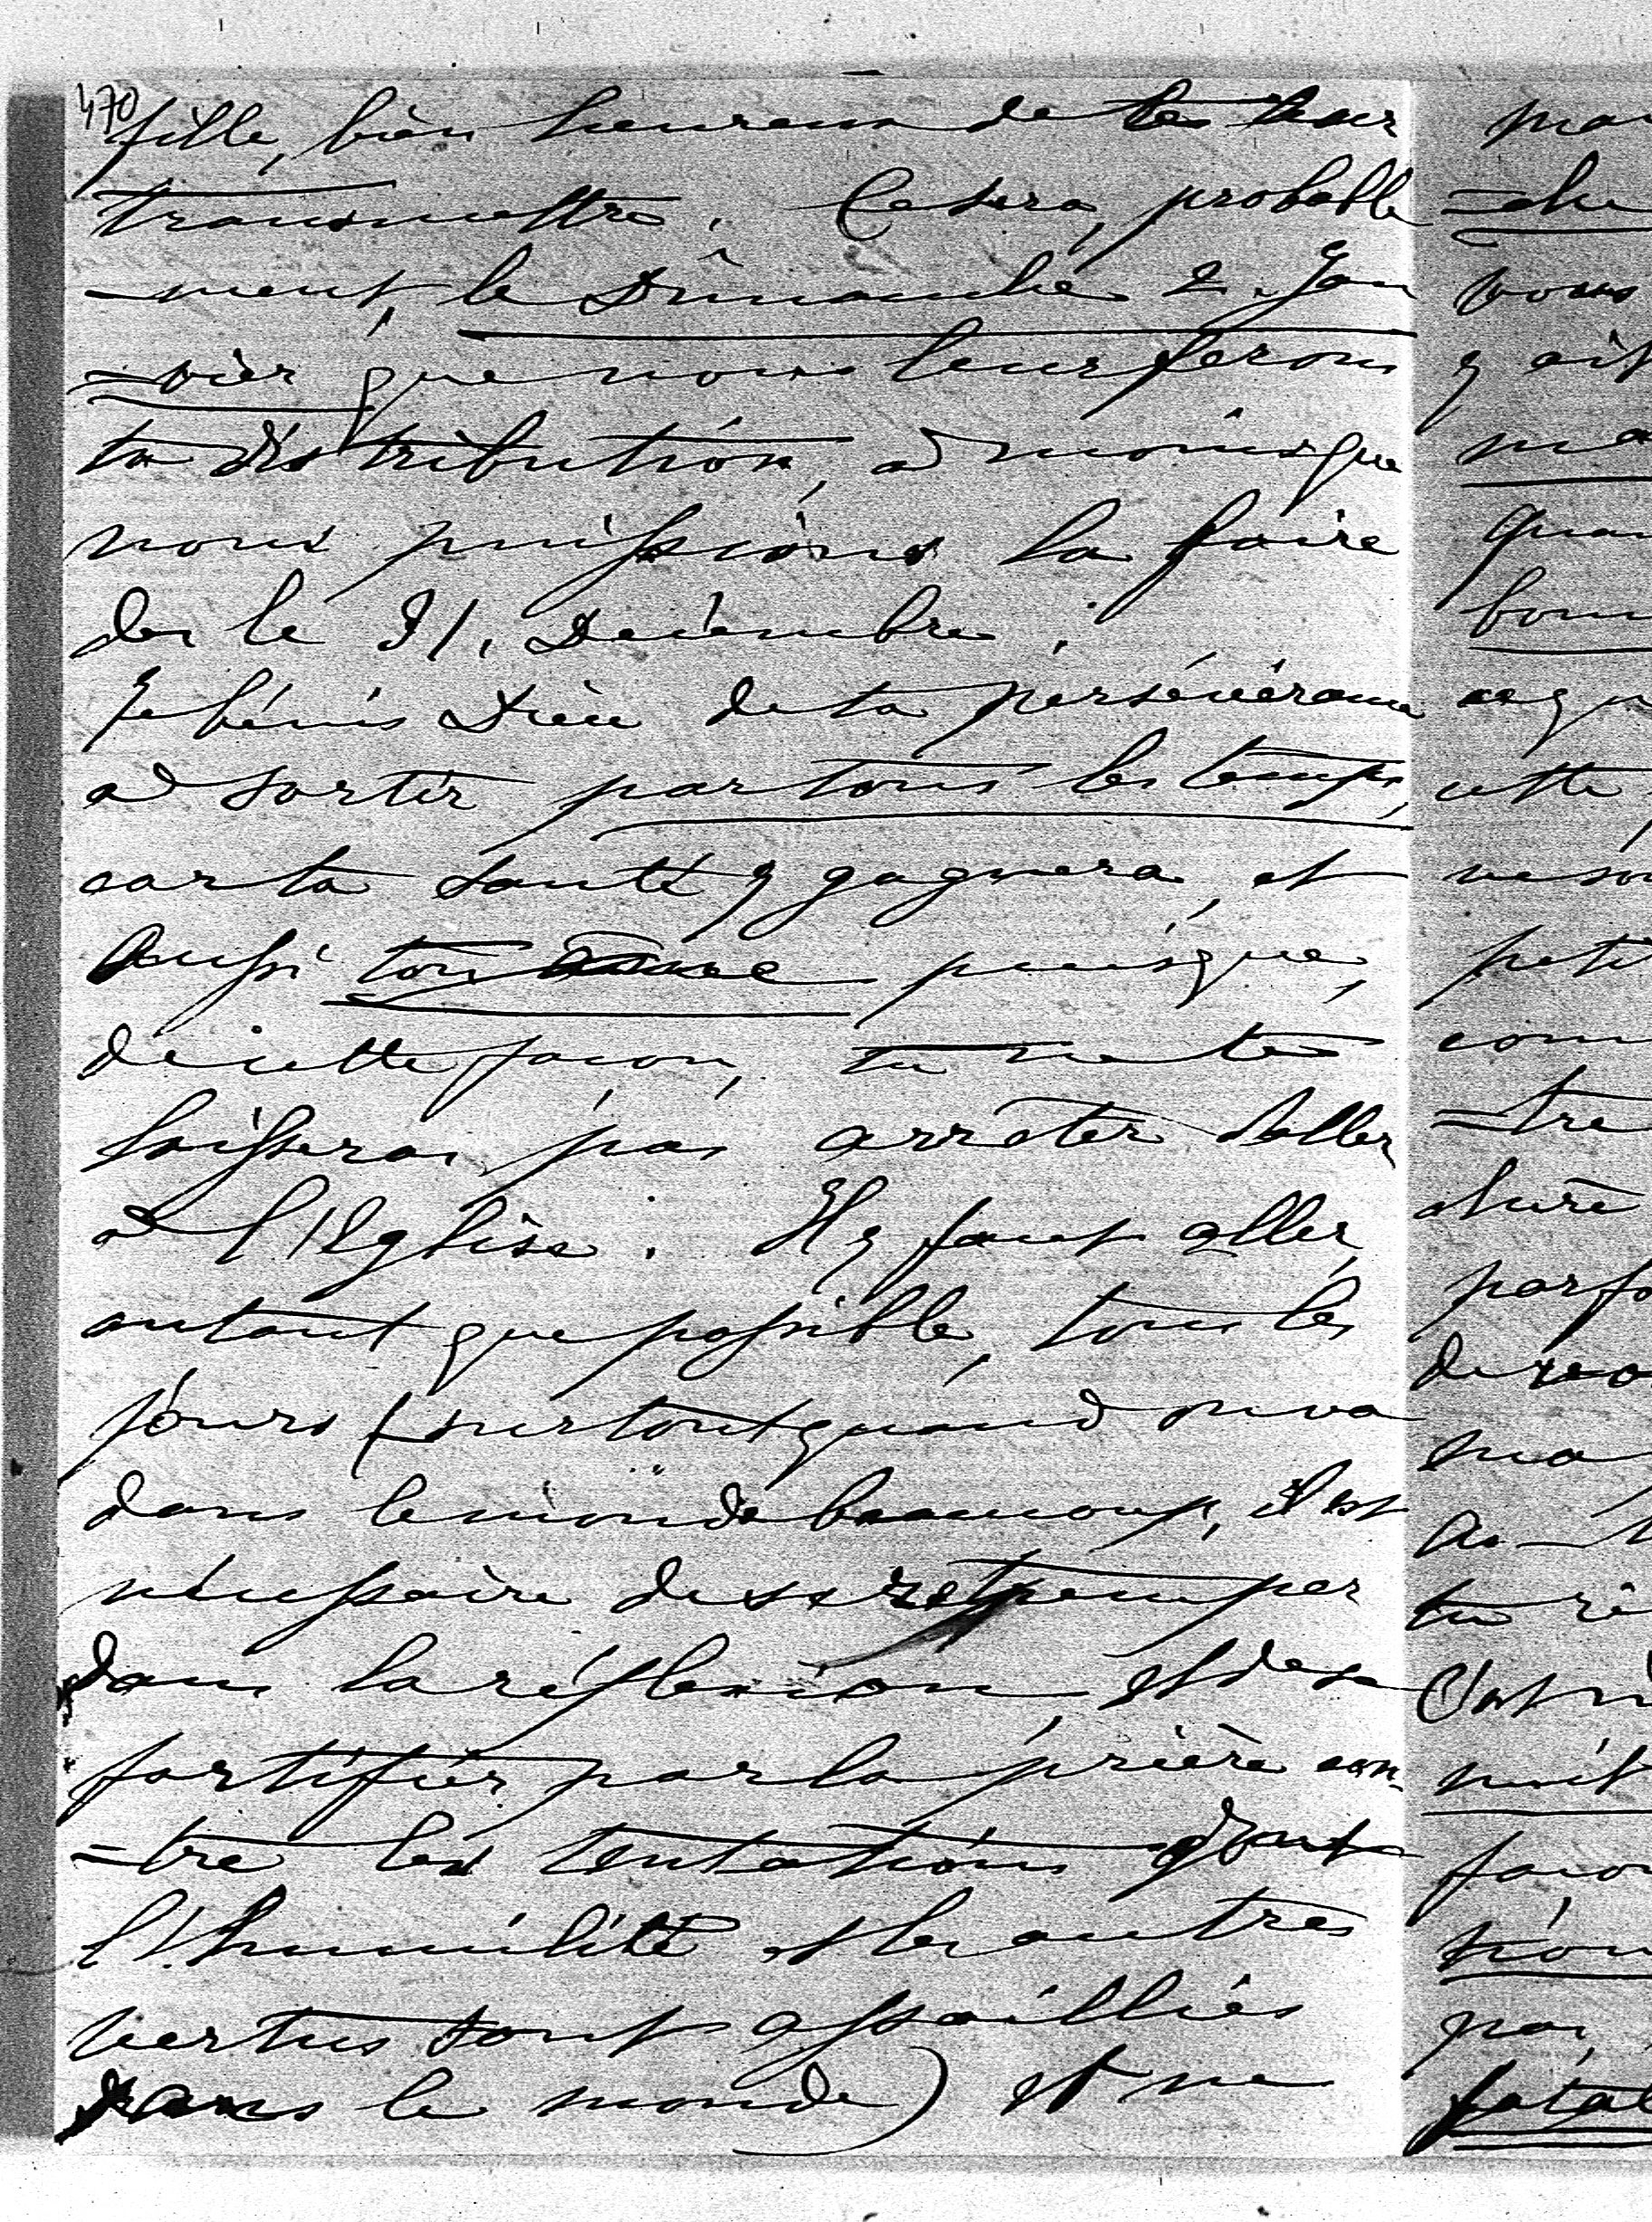 470
fille, bien heureux de les leur
transmettre. Ce sera, probable
-ment, le Dimanche 2. Jan
-vier que nous leur ferons
ta distribution, à moins que
nous puissions la faire
des le 31. Decembre.
Je bénis Dieu de ta persévérance
à sortir par tous les temps,
car ta santé y gagnera, et
aussi ton âme puisque,
de cette facon, tu ne te
laissera pas arreter d'aller
à l'Eglise. Il y faut aller,
autant que possible, tous les
jours (surtout quand on va
dans le monde beaucoup, il est
nécessaire de se retremper
dans la réflexion, et de se
fortifier par la prière con-
-tre les tentations dont
l'humilité et les autres
vertus sont assaillies
dans le monde) et ne
ma
-che
vous
y ait
ma
quan
bon
cette
petit
com
-tre
parfo
de
ma
tu
C'est
nuit